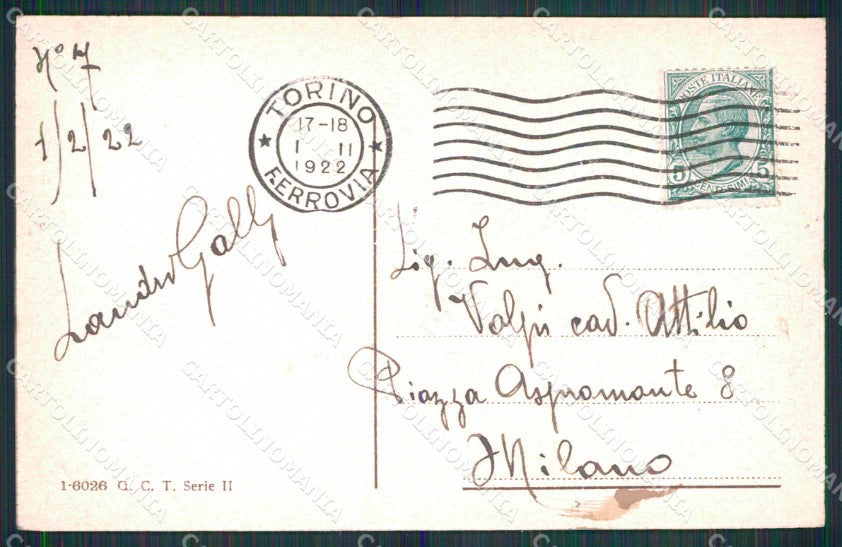 N° 7
1/2/22
TORINO
17-18
1 II
1922
FERROVIA
POSTE ITALIANE
5 5
CENTESIMI
Landro Galli
Sig. Ing.
Volpi cav. Attilio
Piazza Aspromonte 8
Milano
1-6026 G. C. T. Serie II
CARTOLINOMANIA